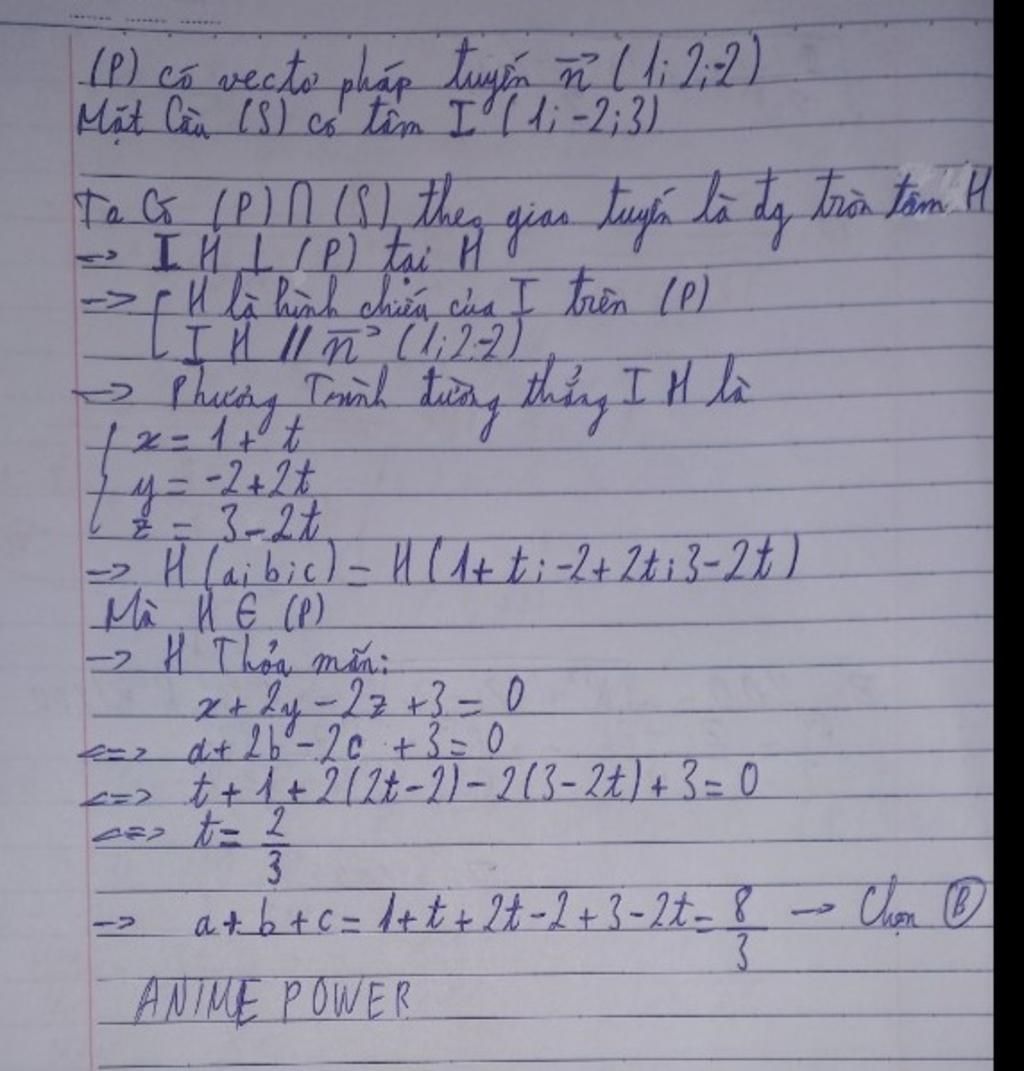 (P) có vectơ pháp tuyến n→ (1; 2; -2)
Mặt Cầu (S) có tâm I (1; -2; 3)
Ta Có (P) ∩ (S) theo giao tuyến là đg tròn tâm H
-> I H ⊥ (P) tại H
-> { H là hình chiếu của I trên (P)
I H // n→ (1; 2; -2)
-> Phương Trình đường thẳng I H là
{ x = 1 + t
y = -2 + 2t
z = 3 - 2t
-> H (a; b; c) = H (1 + t; -2 + 2t; 3 - 2t)
Mà H ∈ (P)
-> H Thỏa mãn:
x + 2y - 2z + 3 = 0
<=> a + 2b - 2c + 3 = 0
<=> t + 1 + 2(2t - 2) - 2(3 - 2t) + 3 = 0
<=> t = 2/3
-> a + b + c = 1 + t + 2t - 2 + 3 - 2t = 8/3 -> Chọn Ⓑ
ANIME POWER